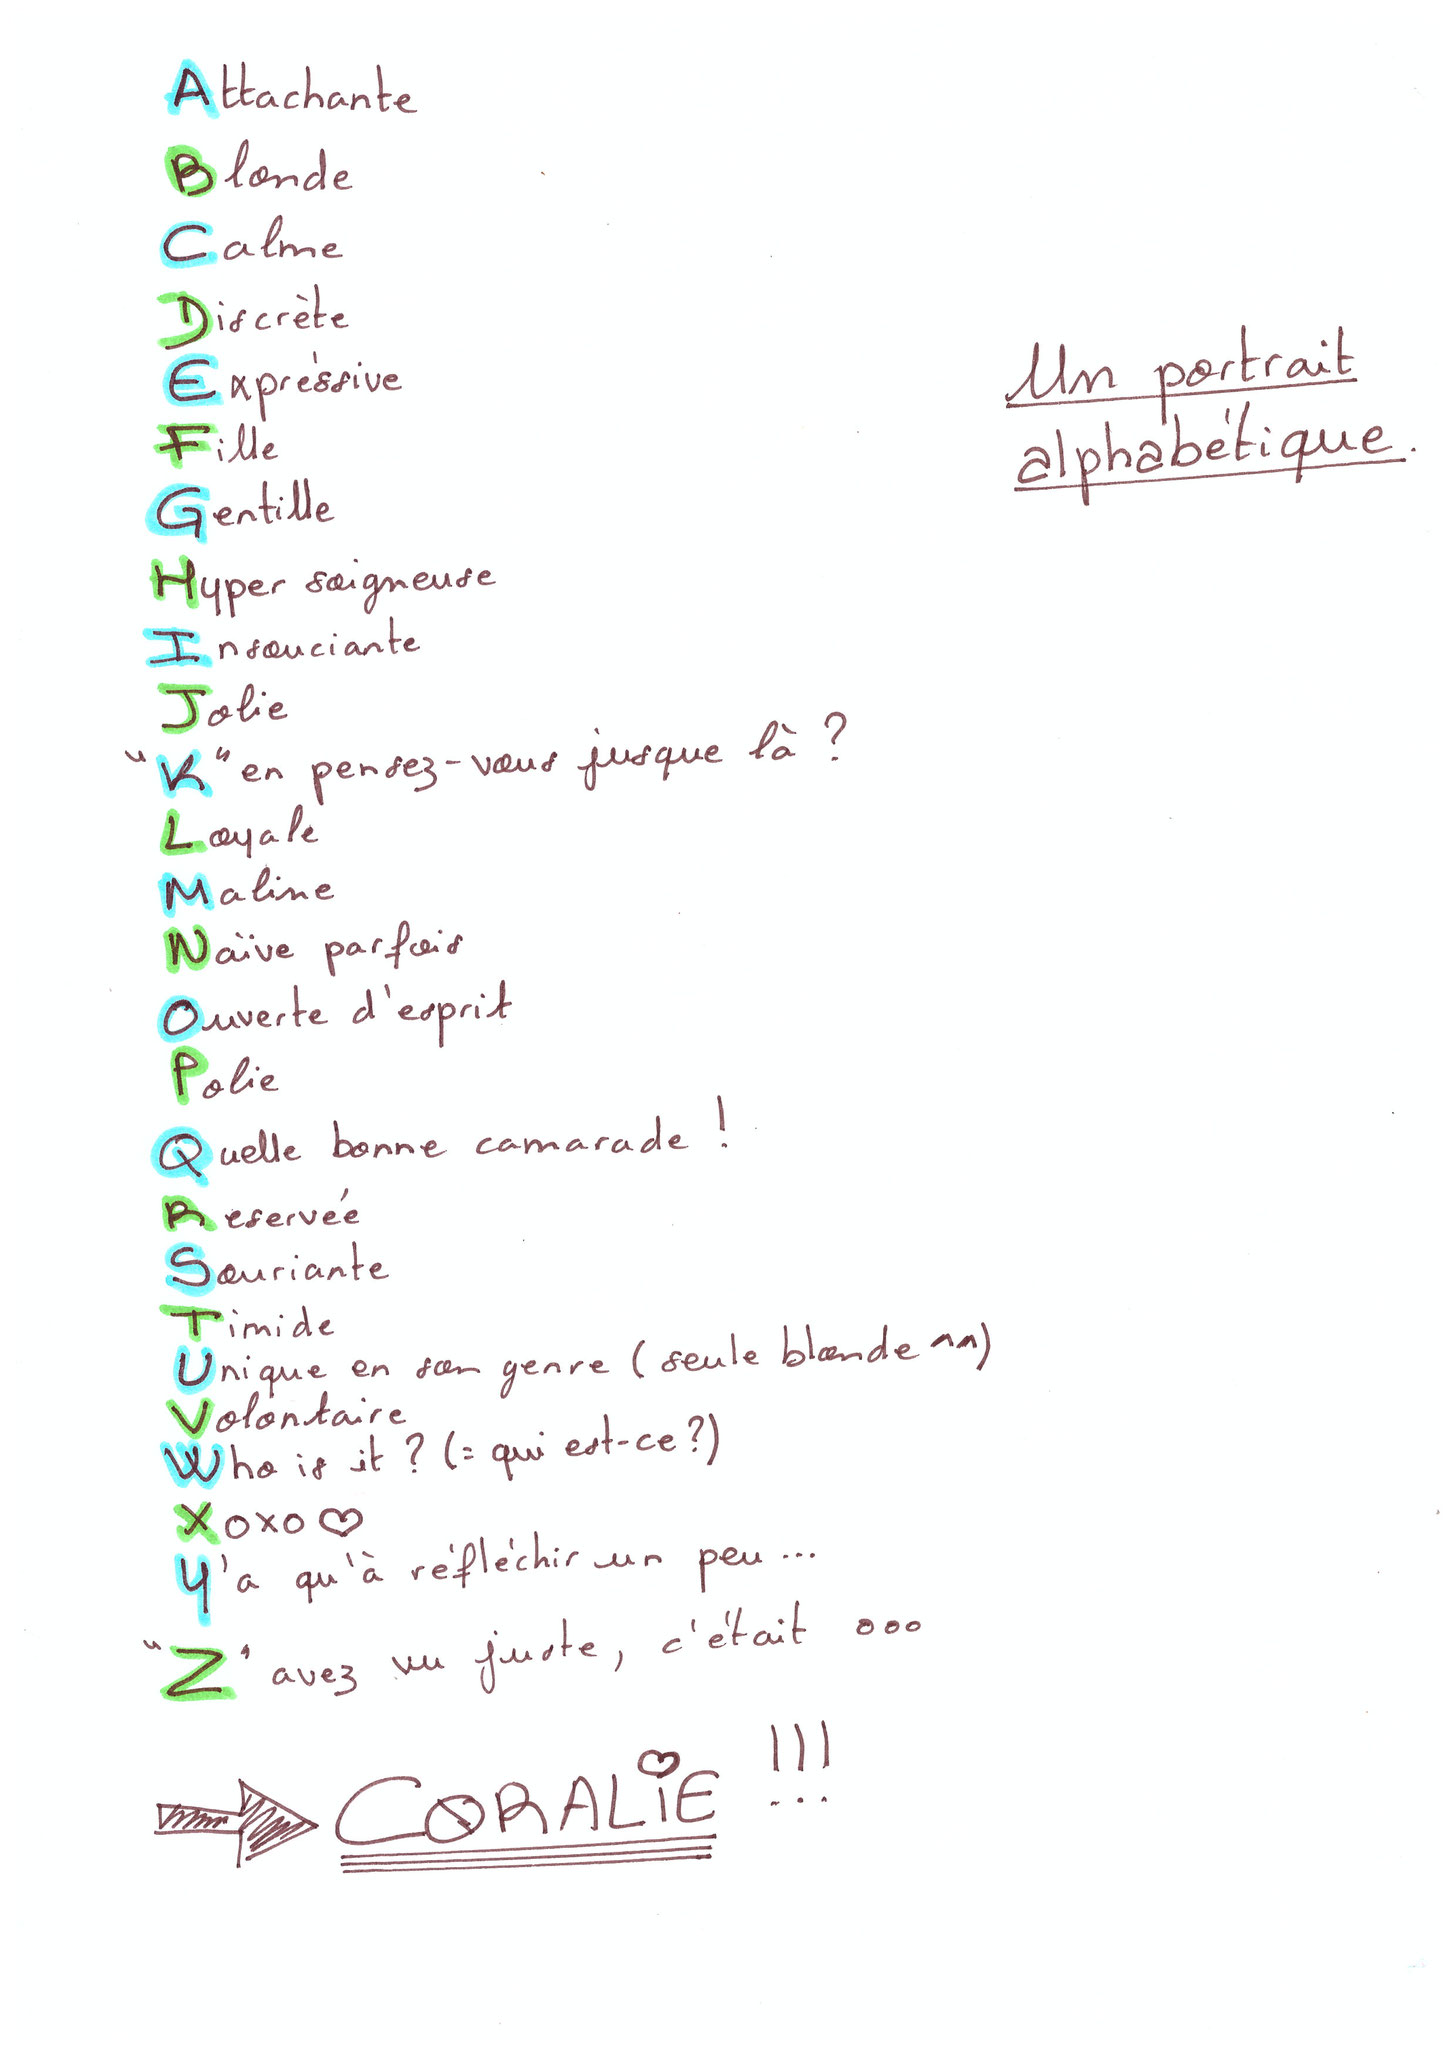 Attachante
Blonde
Calme
Discrète
Expréssive
Un portrait
alphabétique.
Fille
Gentille
Hyper soigneuse
Insouciante
Jolie
"K" en pensez-vous jusque là ?
Loyale
Maline
Naïve parfois
Ouverte d'esprit
Polie
Quelle bonne camarade !
Reservée
Souriante
Timide
Unique en son genre (seule blonde ^^)
Volontaire
Who is it ? (= qui est-ce ?)
Xoxo ♡
Y'a qu'à réfléchir un peu ...
"Z" avez vu juste, c'était ...
CORALiE !!!